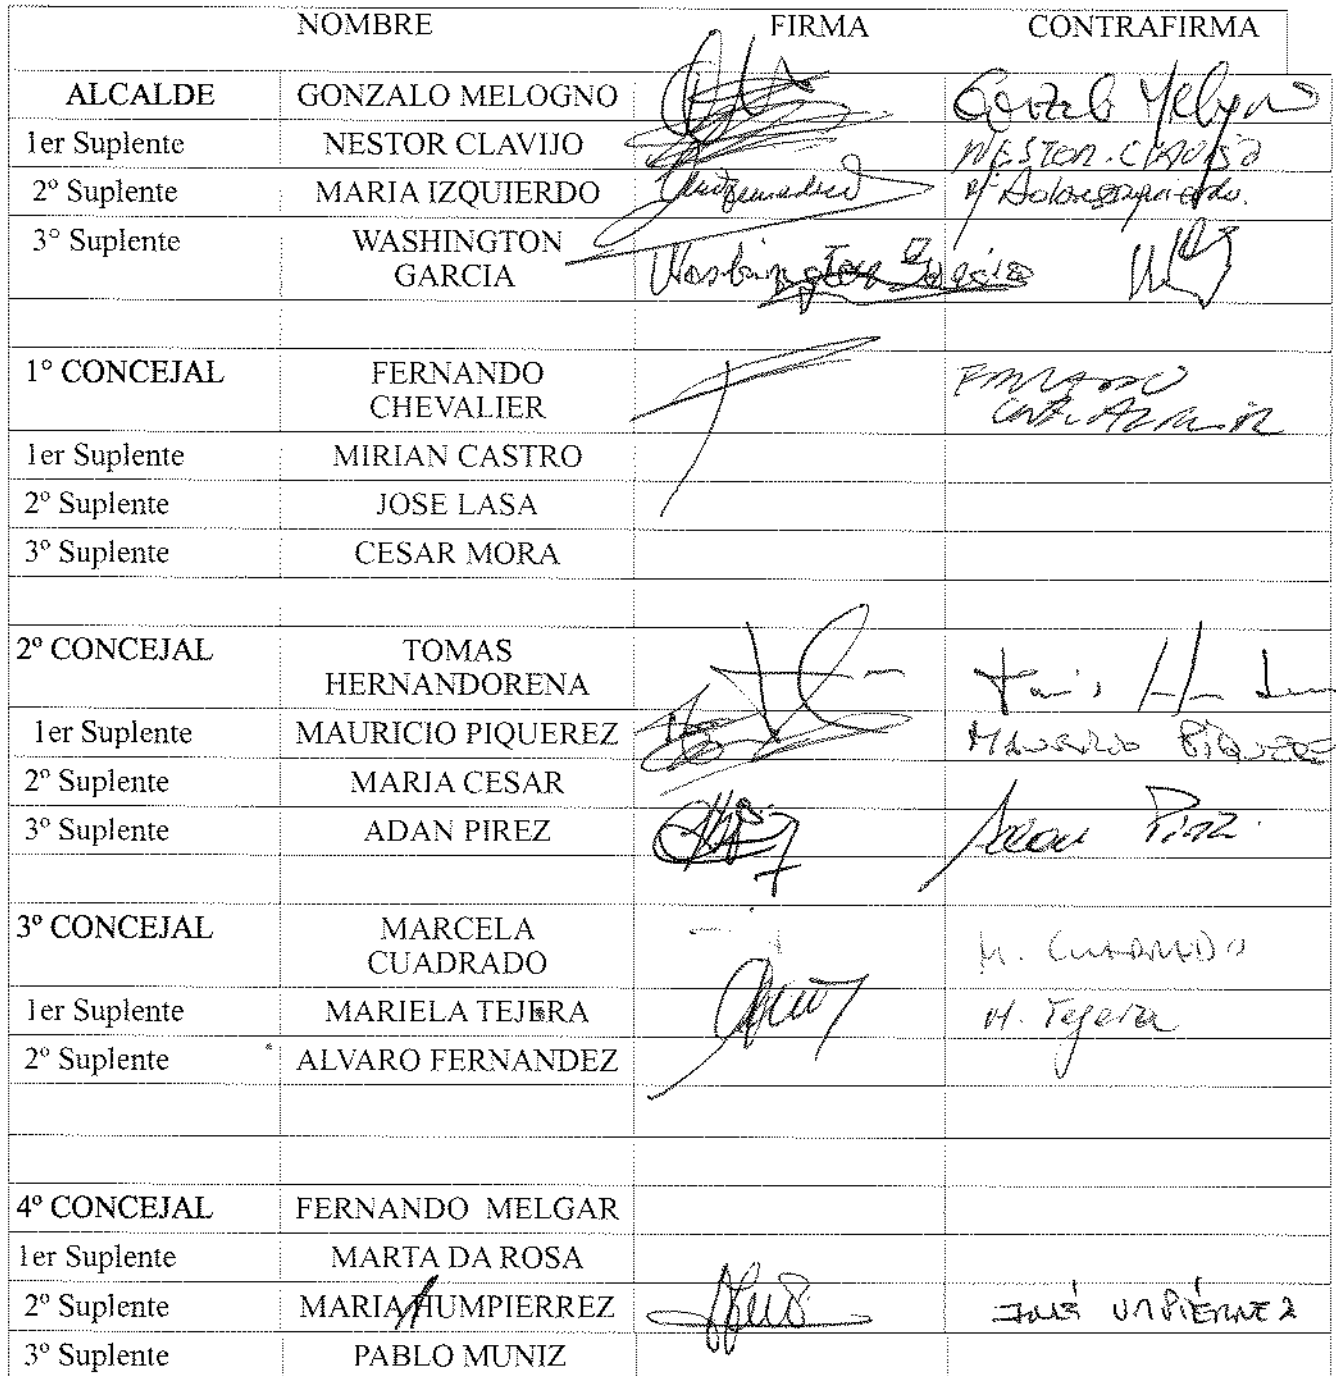 NOMBRE FIRMA CONTRAFIRMA
ALCALDE GONZALO MELOGNO Gonzalo Melogno
1er Suplente NESTOR CLAVIJO NESTOR CLAVIJO
2º Suplente MARIA IZQUIERDO
3° Suplente WASHINGTON Washington García
GARCIA
1° CONCEJAL FERNANDO
CHEVALIER
1er Suplente MIRIAN CASTRO
2º Suplente JOSE LASA
3º Suplente CESAR MORA
2º CONCEJAL TOMAS
HERNANDORENA
1er Suplente MAURICIO PIQUEREZ MAURICIO
2º Suplente MARIA CESAR
3º Suplente ADAN PIREZ Adan
3º CONCEJAL MARCELA M. CUADRADO
CUADRADO
1er Suplente MARIELA TEJERA M. Tejera
2º Suplente ALVARO FERNANDEZ
4º CONCEJAL FERNANDO MELGAR
1er Suplente MARTA DA ROSA
2º Suplente MARIA HUMPIERREZ
3º Suplente PABLO MUNIZ